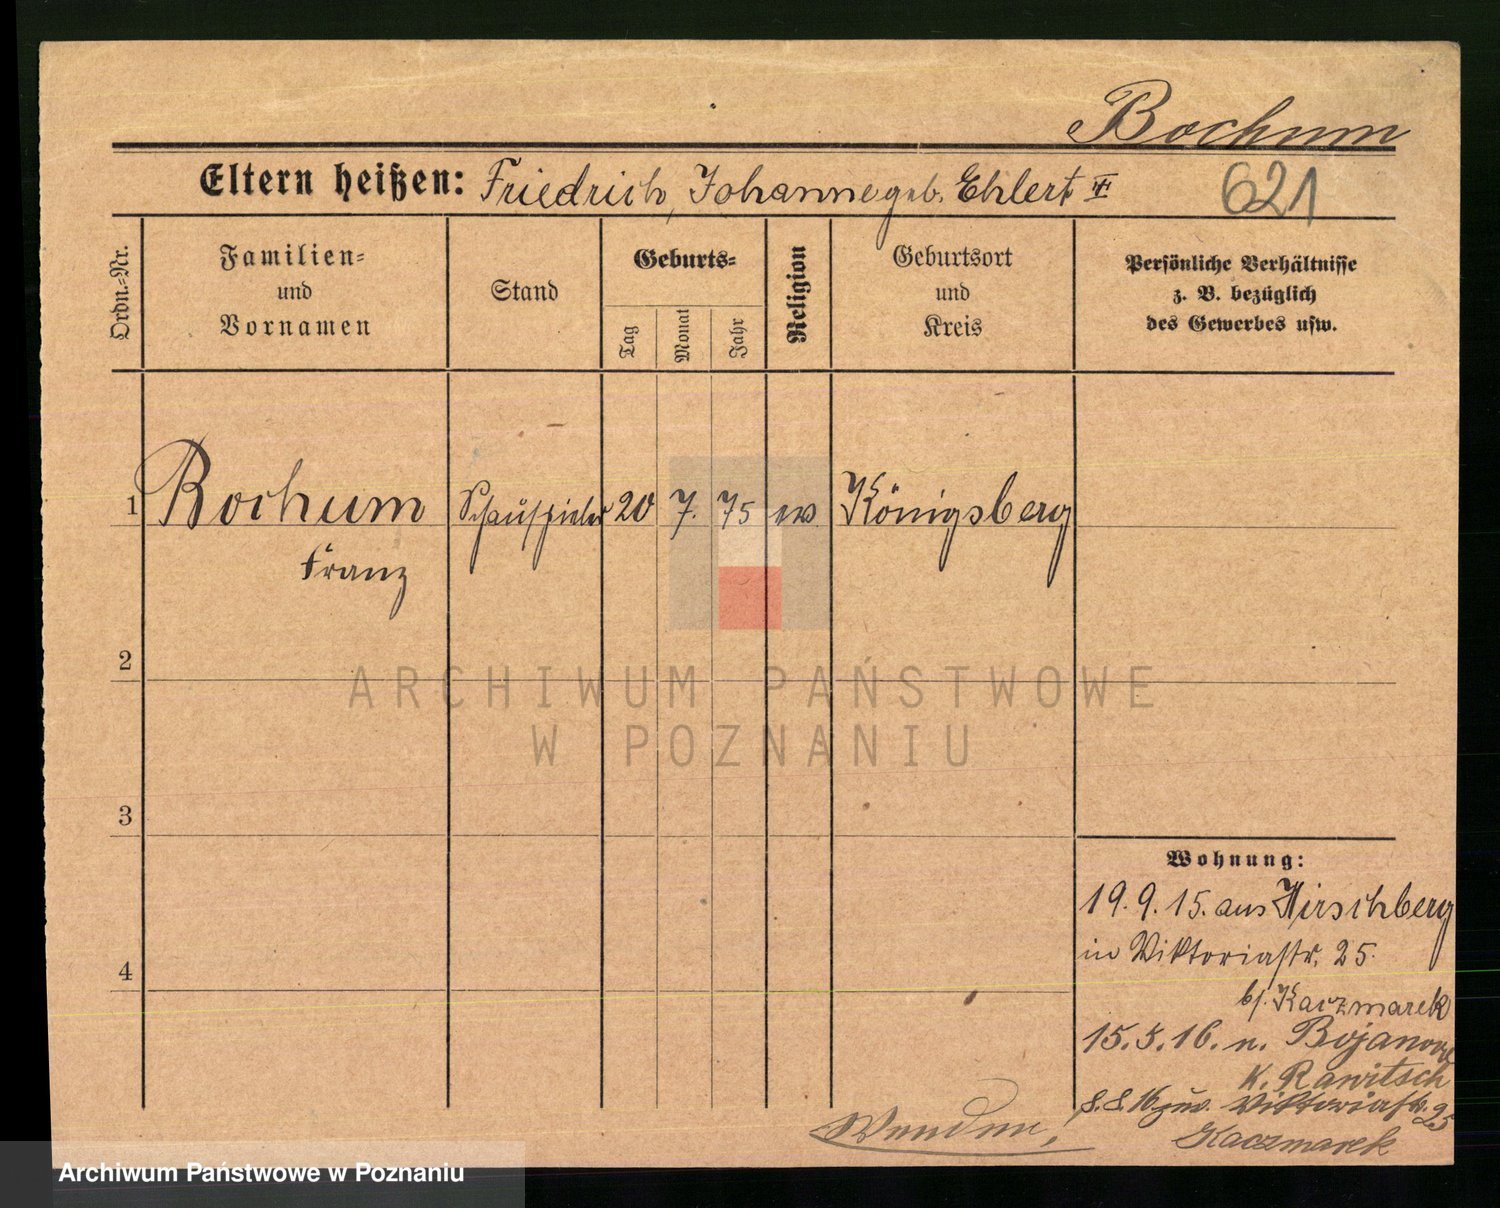 Bochum
Eltern heißen: Friedrich, Johanne geb. Ehlert
621
Ordn.-Nr.
Familien-
und
Vornamen
Stand
Geburts-
Tag
Monat
Jahr
Religion
Geburtsort
und
Kreis
Persönliche Verhältnisse
z. B. bezüglich
des Gewerbes usw.
1 Bochum Schauspieler 20 7. 75 ev Königsberg
Franz
2
3
4
Wohnung:
19.9.15. aus Hirschberg
in Viktoriastr. 25.
bj. Kaczmarek
15.5.16. n. Bojanowo
K. Rawitsch
8.8.16 zur. Viktoriastr. 25
Kaczmarek
Wenden!
ARCHIWUM PAŃSTWOWE
W POZNANIU
Archiwum Państwowe w Poznaniu